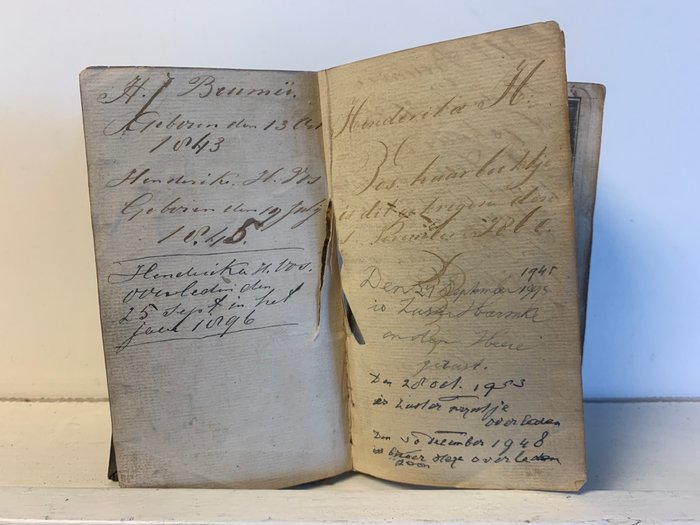 H. J Beumii.
Geboren den 13 Oct
1843
Hendrika. H. Vos
Geboren den 19 July
1845
Hendrika H. Vos.
overleden den
25 Sept. in het
jaar 1896
Henderika H.
Vos. haar boekje
is dit den
1860.
1945
Den 29 September
is Zuster Harmke
in den Heere
gerust.
Den 28 oct. 1953
is Zuster overleden
Den 30 December 1948
is overleden
zoon